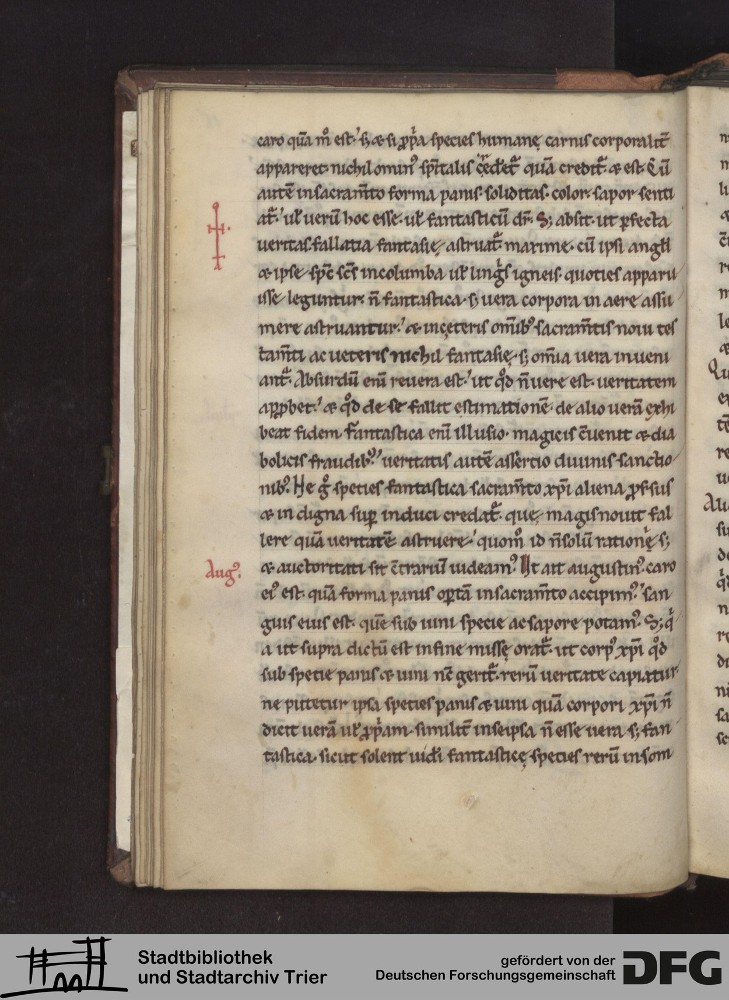 caro quã m̊ est. s; & si ꝓp̃a species humanę carnis corporalit̃
appareret. nichil omin᷒ sp̃italis c̨ederet̃ quã credit̃. & est. Cũ
autẽ in sacram̃to forma panis soliditas. color. sapor senti
at̃. ul̃ uerũ hoc esse. ul̃ fantasticũ dr̃. S; absit. ut ꝑfecta
ueritas. fallatia fantasię astruat̃. maxime. cũ ipsi angl̃i
& ipse sp̃c sc̃s in columba ul̃ linguis igneis quoties apparu
isse leguntur. ñ fantastica. s; uera corpora in aere assu
mere astruantur. & in cęteris om̃ib᷒ sacram̃tis noui tes
tam̃ti ac ueteris nichil fantasię. s; om̃ia uera inueni
ant̃. Absurdũ eni reuera est. ut qd̃ ñ uere est. ueritatem
apꝓbet. & qd̃ de se fallit estimationẽ. de alio uerã exhi
beat fidem. Fantastica eni illusio. magicis c̃uenit & dia
bolicis fraudib᷒. ueritatis autẽ assertio diuinis sanctio
nib᷒. He g̊ species fantastica sacram̃to xp̃i aliena ꝓrsus
& indigna suꝑ induci credat̃. quę magis nouit fal
lere quã ueritatẽ astruere. quom̊ id ñ solũ rationi. s;
& auctoritati sit c̃trariũ uideam᷒. Ut ait augustin᷒. caro
Aug᷒.
ei᷒ est. quã forma panis opertã in sacram̃to accipim᷒. san
guis eius est. quẽ sub uini specie ac sapore potam᷒. S; q̃
a ut supra dictũ est in fine missę orat̃. ut corp᷒ xp̃i qd̃
sub specie panis & uini nc̃ gerit̃. rerũ ueritate capiatur.
ne putetur ipsa species panis & uini quã corpori xp̃i ñ
dicit uerã ul̃ ꝓpriam. similit̃ in seipsa ñ esse uera s; fan
tastica. sicut solent uideri fantasticę species rerũ in som
Stadtbibliothek
und Stadtarchiv Trier
gefördert von der
Deutschen Forschungsgemeinschaft
DFG